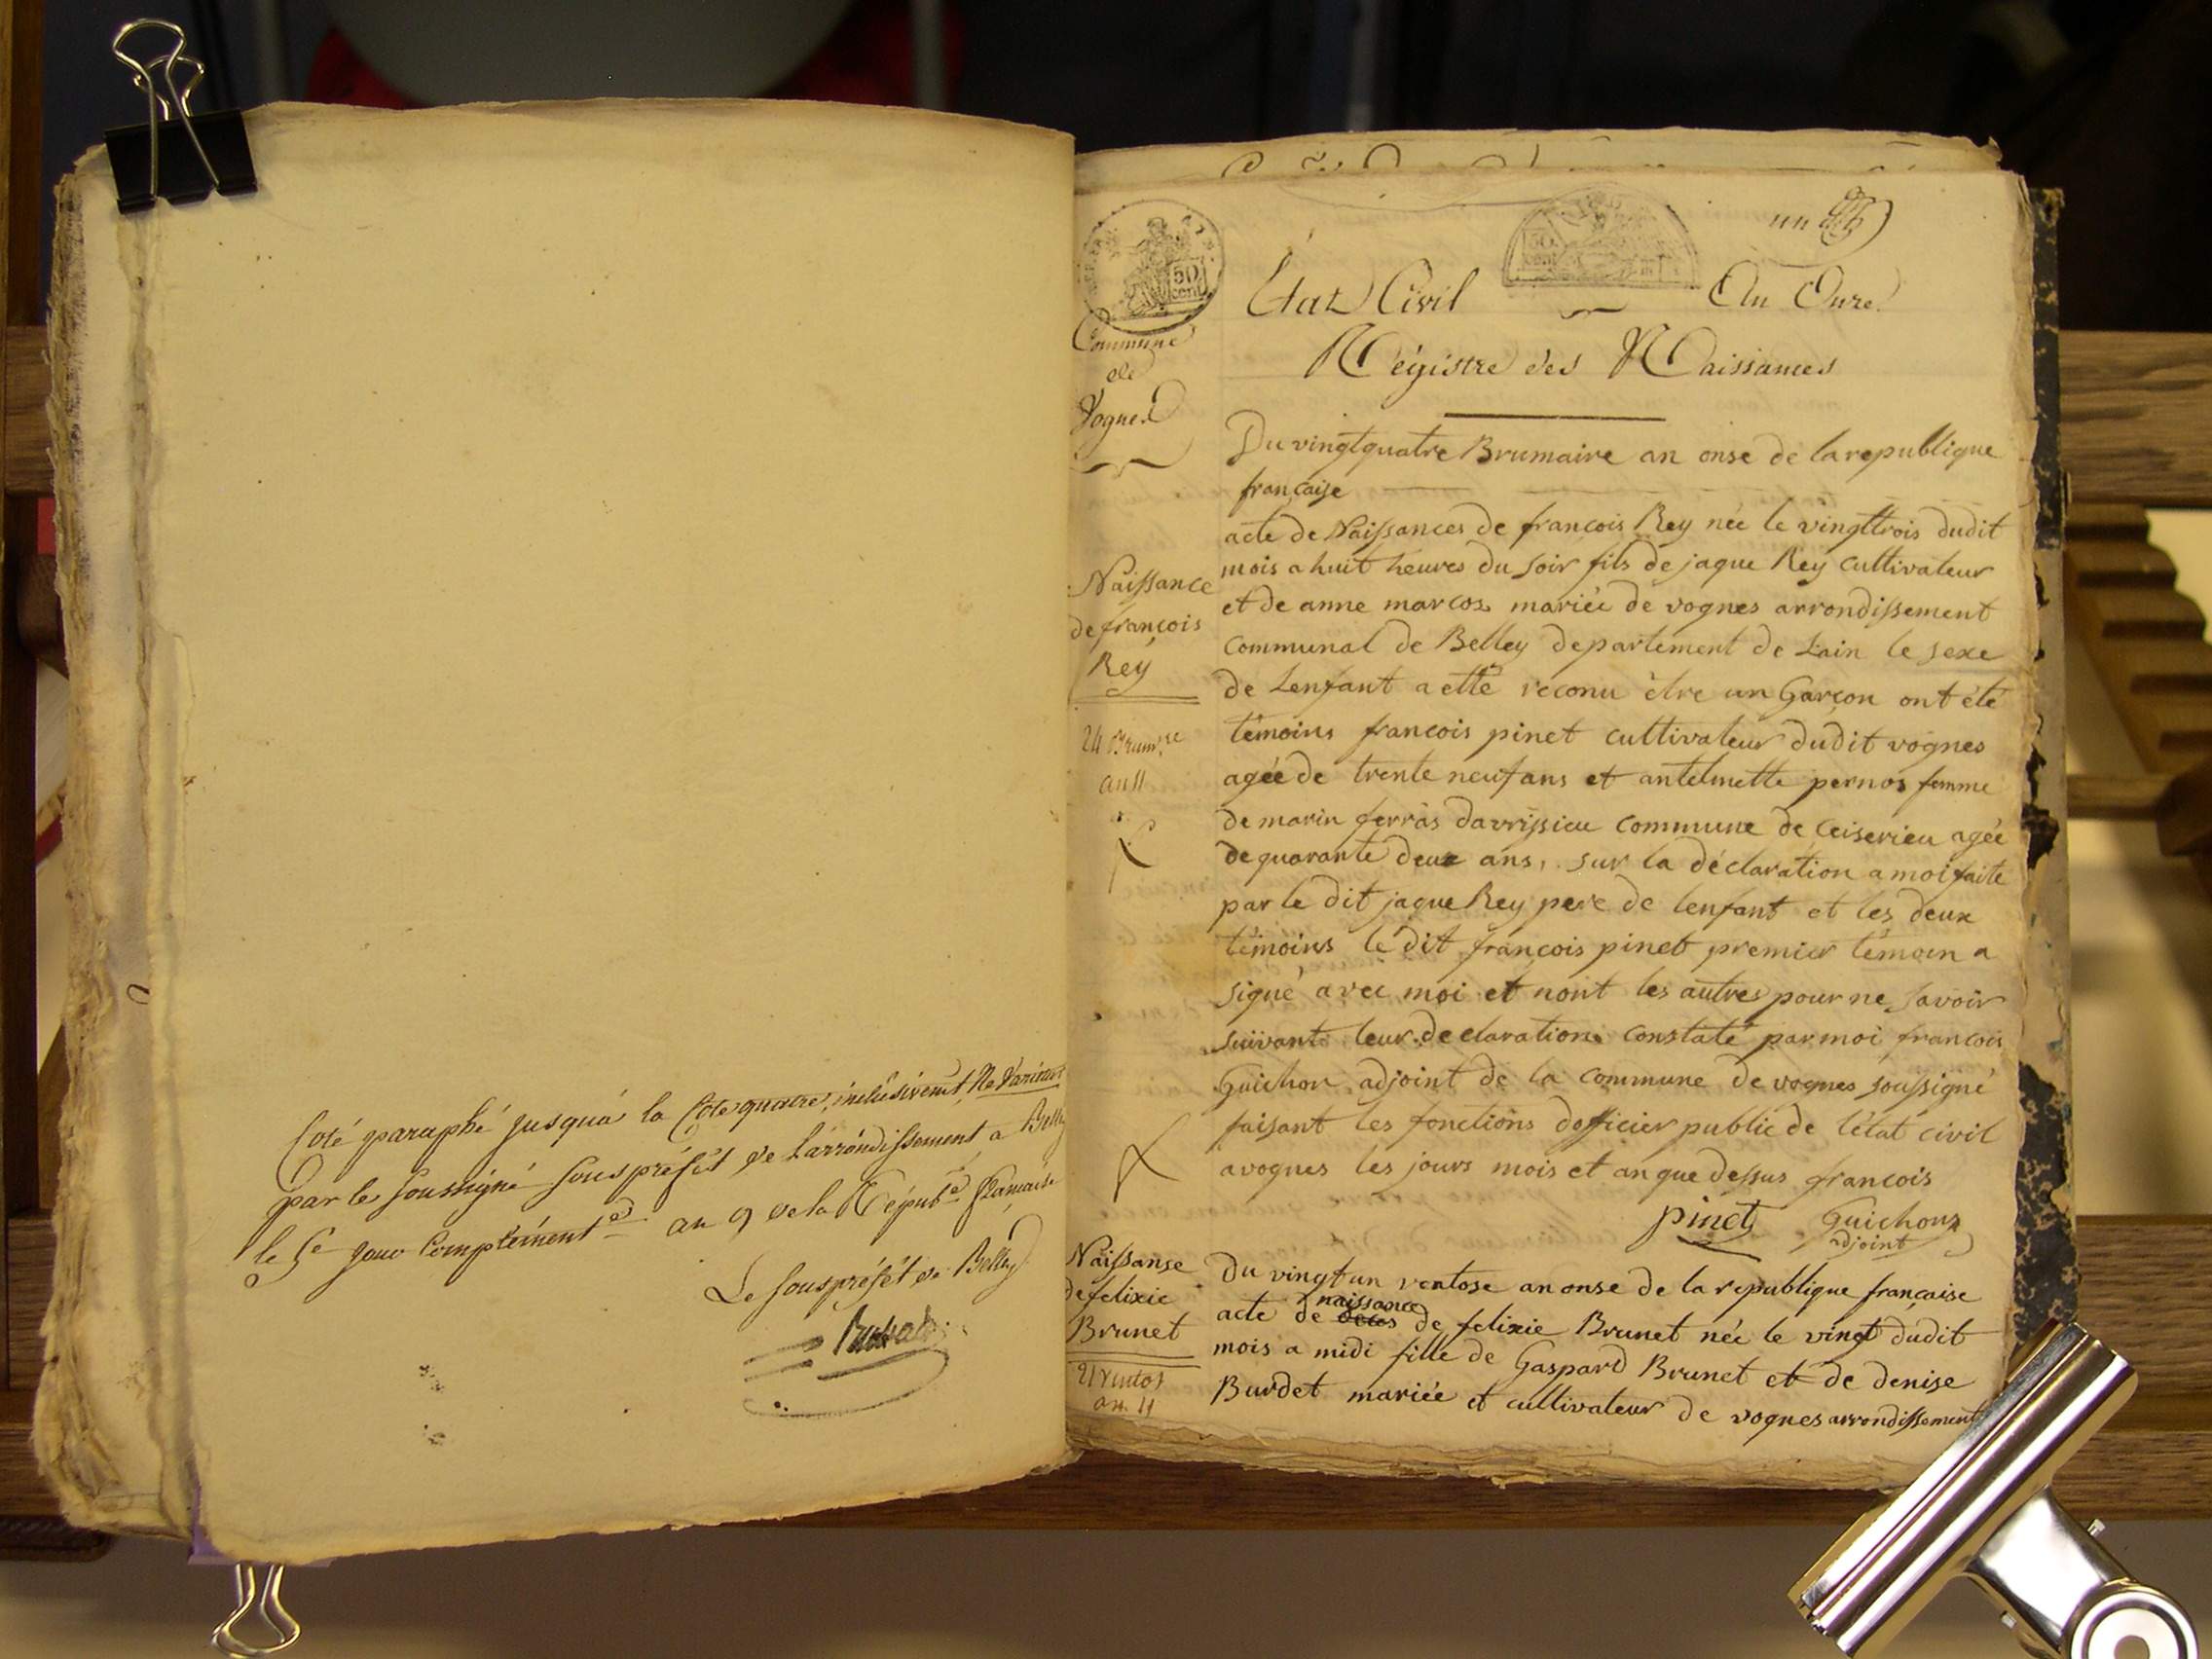 Coté paraphé jusquá la Cote quatre, inclusivemt, Ne Varietur
par le soussigné Sous préfét de Larrondissement a Belley
le 5e jour Complément.e an 9 de la Répub.e française
Le sous préfét de Belley
un
50 cent
50 cent
État Civil An Onze
Commune
de
Vognes
Régistre des Naissances
Du vingtquatre Brumaire an onse de la republique
française
Naissance
de françois
Rey
24 Brum.re
an 11
acte de Naissances de françois Rey née le vingttrois dudit
mois a huit heures du soir fils de jaque Rey cultivateur
et de anne marcoz mariée de vognes arrondissement
communal de Belley departement de Lain le sexe
de Lenfant a etté reconu être un Garçon ont été
témoins francois pinet cultivateur dudit vognes
agée de trente neuf ans et antelmette pernos femme
de marin ferras davrissieu commune de Ceiserieu agée
de quarante deux ans, sur la déclaration a moi faite
par le dit jaque Rey pere de lenfant et les deux
témoins le dit françois pinet premier témoin a
signé avec moi et nont les autres pour ne savoir
suivant leur declaration constaté par moi francois
Guichon adjoint de la commune de vognes soussigné
faisant les fonctions dofficier public de l'état civil
a vognes les jours mois et an que dessus francois
pinet Guichon
adjoint
Naissanse
de felixie
Brunet
21 ventos
an 11
Du vingt un ventose an onse de la republique française
naissance
acte de deces de felixie Brunet née le vingt dudit
mois a midi fille de Gaspard Brunet et de denise
Burdet mariée et cultivateur de vognes arrondissement